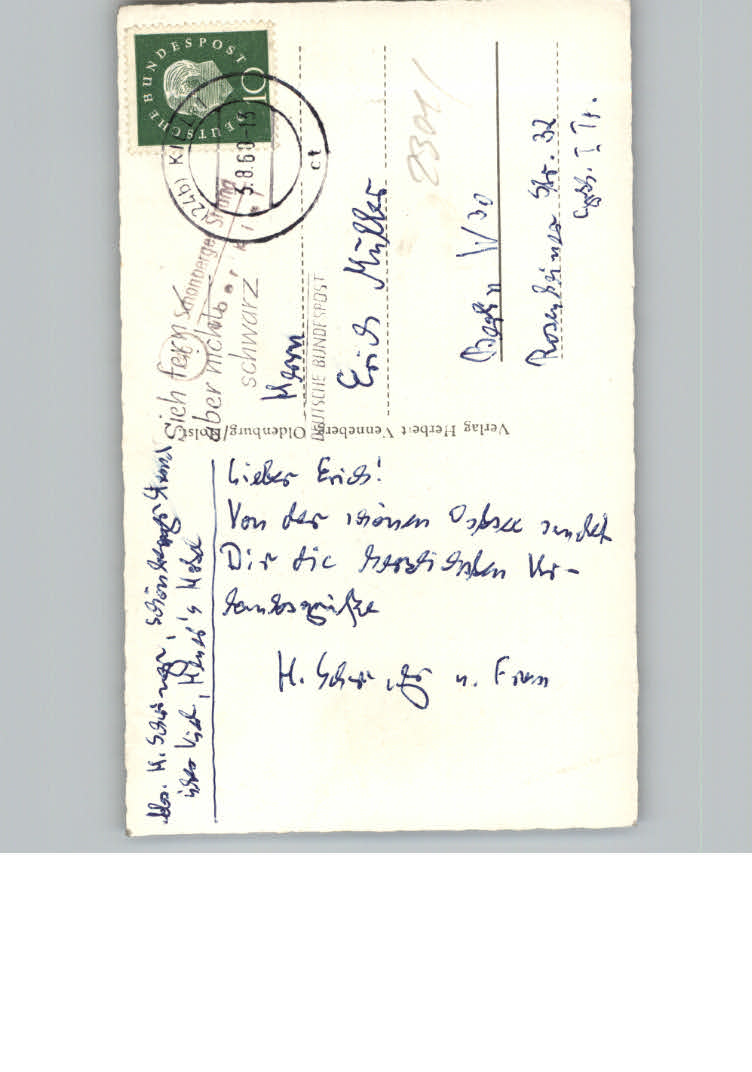 DEUTSCHE BUNDESPOST
10
(24b) KIEL
3.8.60-13
ct
Schönberger Strand
Sich fern
aber nicht
schwarz
DEUTSCHE BUNDESPOST
2301/
Herrn
Erich Müller
Berlin W 30
Rosenheimer Str. 32
Gths. I Tr.
Verlag Herbert Venneberg Oldenburg/Holst
Lieber Erich!
Von der schönen Ostsee sendet
Dir die herzlichsten Ur-
laubsgrüße
H. u. Frau
Abs. H. Schönberger Strand
über Kiel,